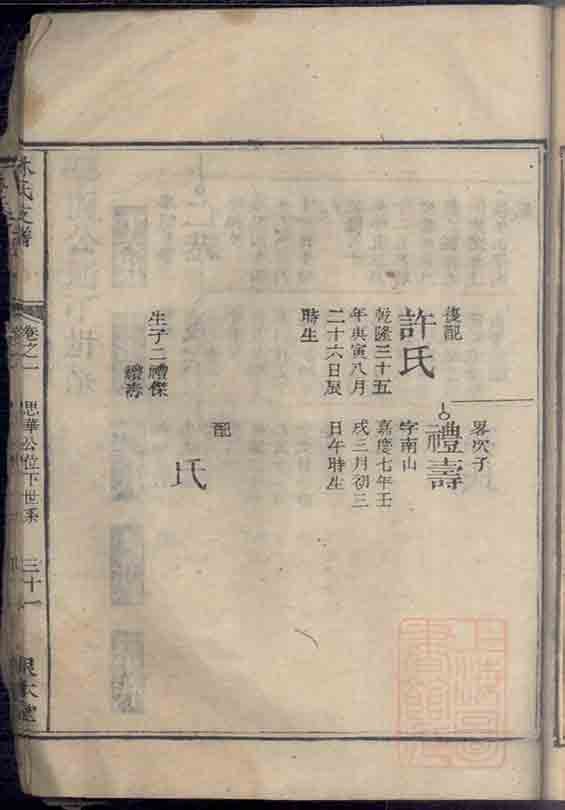 復配
許氏
乾隆三十五
年庚寅八月
二十六日辰
時生
生子二禮傑
禮壽
畧次子
禮壽
字南山
嘉慶七年壬
戌三月初三
日午時生
配
氏
林氏支譜
卷之一
思華公位下世系
三十一
上海圖
書館藏